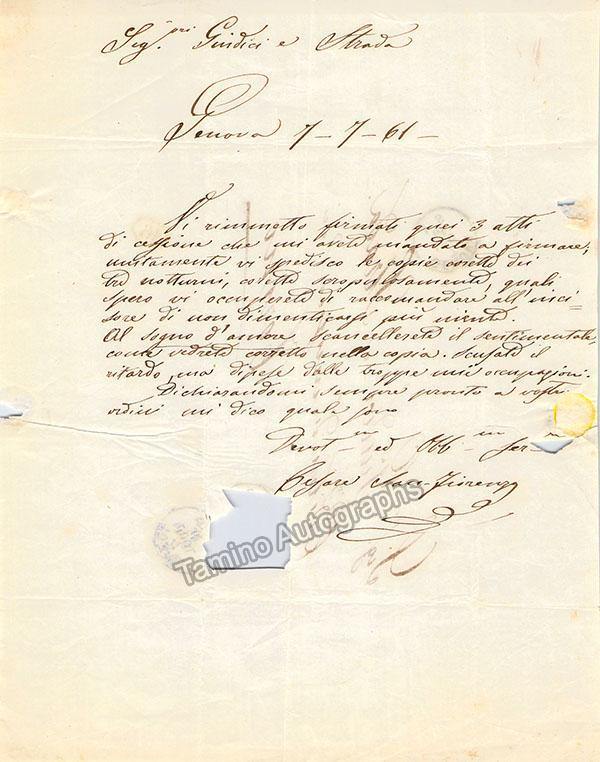 Sig.pri Giudici e Strada
Genova 7-7-61-
Vi rimmetto firmati quei 3 atti
di cessione che mi avete mandato a firmare,
unitamente vi spedisco le copie corette dei
tre notturni, corette scropulosamente, quali
spero vi occuperete di racomandare all'inci=
sore di non dimenticarsi più niente.
Al sogno d'amore scancellerete il sentimentale
come vedrete corretto nella copia. Scusate il
ritardo, ma dipese dalle troppe mie occupazioni.
Dichiarandomi sempre pronto a vostri
ordini mi dico quale sono
Devot.m ed Obb.m Ser.
Cesare San-Fiorenzo
Tamino Autographs